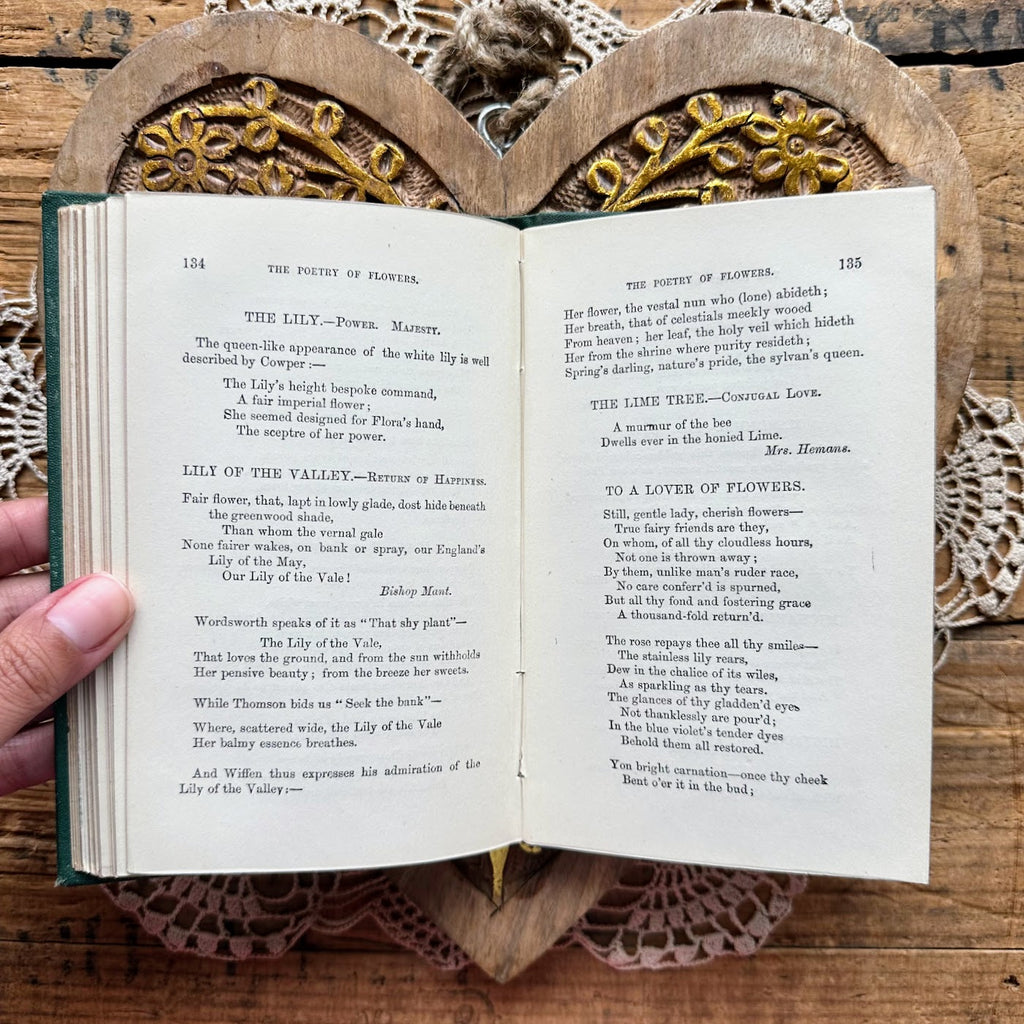 134
THE POETRY OF FLOWERS.
THE LILY.—POWER. MAJESTY.
The queen-like appearance of the white lily is well
described by Cowper:—
The Lily's height bespoke command,
A fair imperial flower;
She seemed designed for Flora's hand,
The sceptre of her power.
LILY OF THE VALLEY.—RETURN OF HAPPINESS.
Fair flower, that, lapt in lowly glade, dost hide beneath
the greenwood shade,
Than whom the vernal gale
None fairer wakes, on bank or spray, our England's
Lily of the May,
Our Lily of the Vale!
Bishop Mant.
Wordsworth speaks of it as "That shy plant"—
The Lily of the Vale,
That loves the ground, and from the sun withholds
Her pensive beauty; from the breeze her sweets.
While Thomson bids us "Seek the bank"—
Where, scattered wide, the Lily of the Vale
Her balmy essence breathes.
And Wiffen thus expresses his admiration of the
Lily of the Valley:—
THE POETRY OF FLOWERS.
135
Her flower, the vestal nun who (lone) abideth;
Her breath, that of celestials meekly wooed
From heaven; her leaf, the holy veil which hideth
Her from the shrine where purity resideth;
Spring's darling, nature's pride, the sylvan's queen.
THE LIME TREE.—CONJUGAL LOVE.
A murmur of the bee
Dwells ever in the honied Lime.
Mrs. Hemans.
TO A LOVER OF FLOWERS.
Still, gentle lady, cherish flowers—
True fairy friends are they,
On whom, of all thy cloudless hours,
Not one is thrown away;
By them, unlike man's ruder race,
No care conferr'd is spurned,
But all thy fond and fostering grace
A thousand-fold return'd.
The rose repays thee all thy smiles—
The stainless lily rears,
Dew in the chalice of its wiles,
As sparkling as thy tears.
The glances of thy gladden'd eyes
Not thanklessly are pour'd;
In the blue violet's tender dyes
Behold them all restored.
Yon bright carnation—once thy cheek
Bent o'er it in the bud;